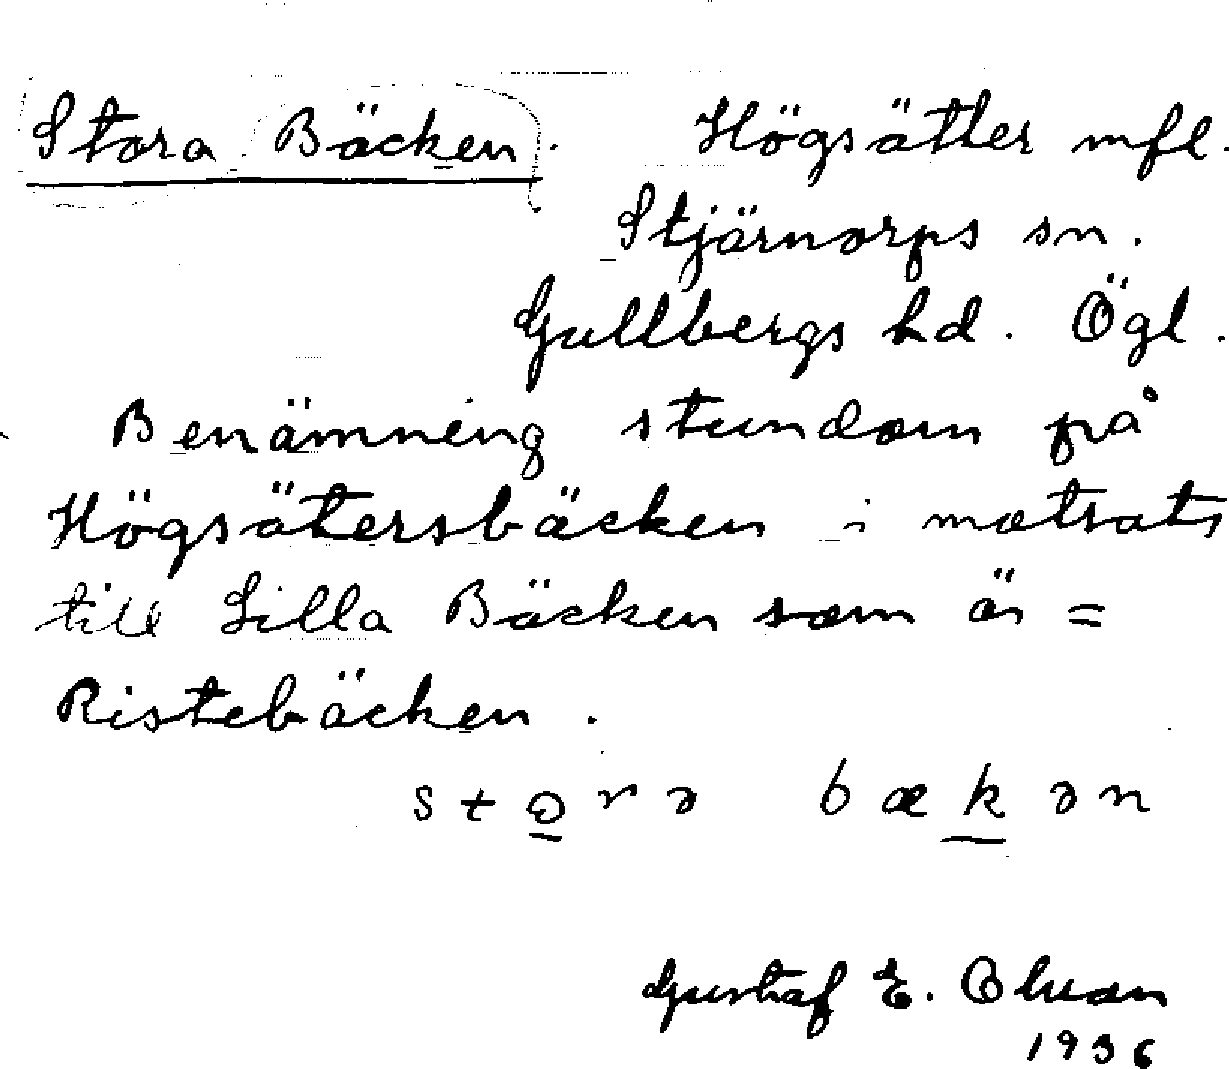 Stora Bäcken. Högsätter mfl.
Stjärnorps sn.
Gullbergs hd. Ögl.
Benämning stundom på
Högsätersbäcken i motsats
till Lilla Bäcken som är =
Ristebäcken.
stɷrə bækən
Gustaf E. Olsson
1936